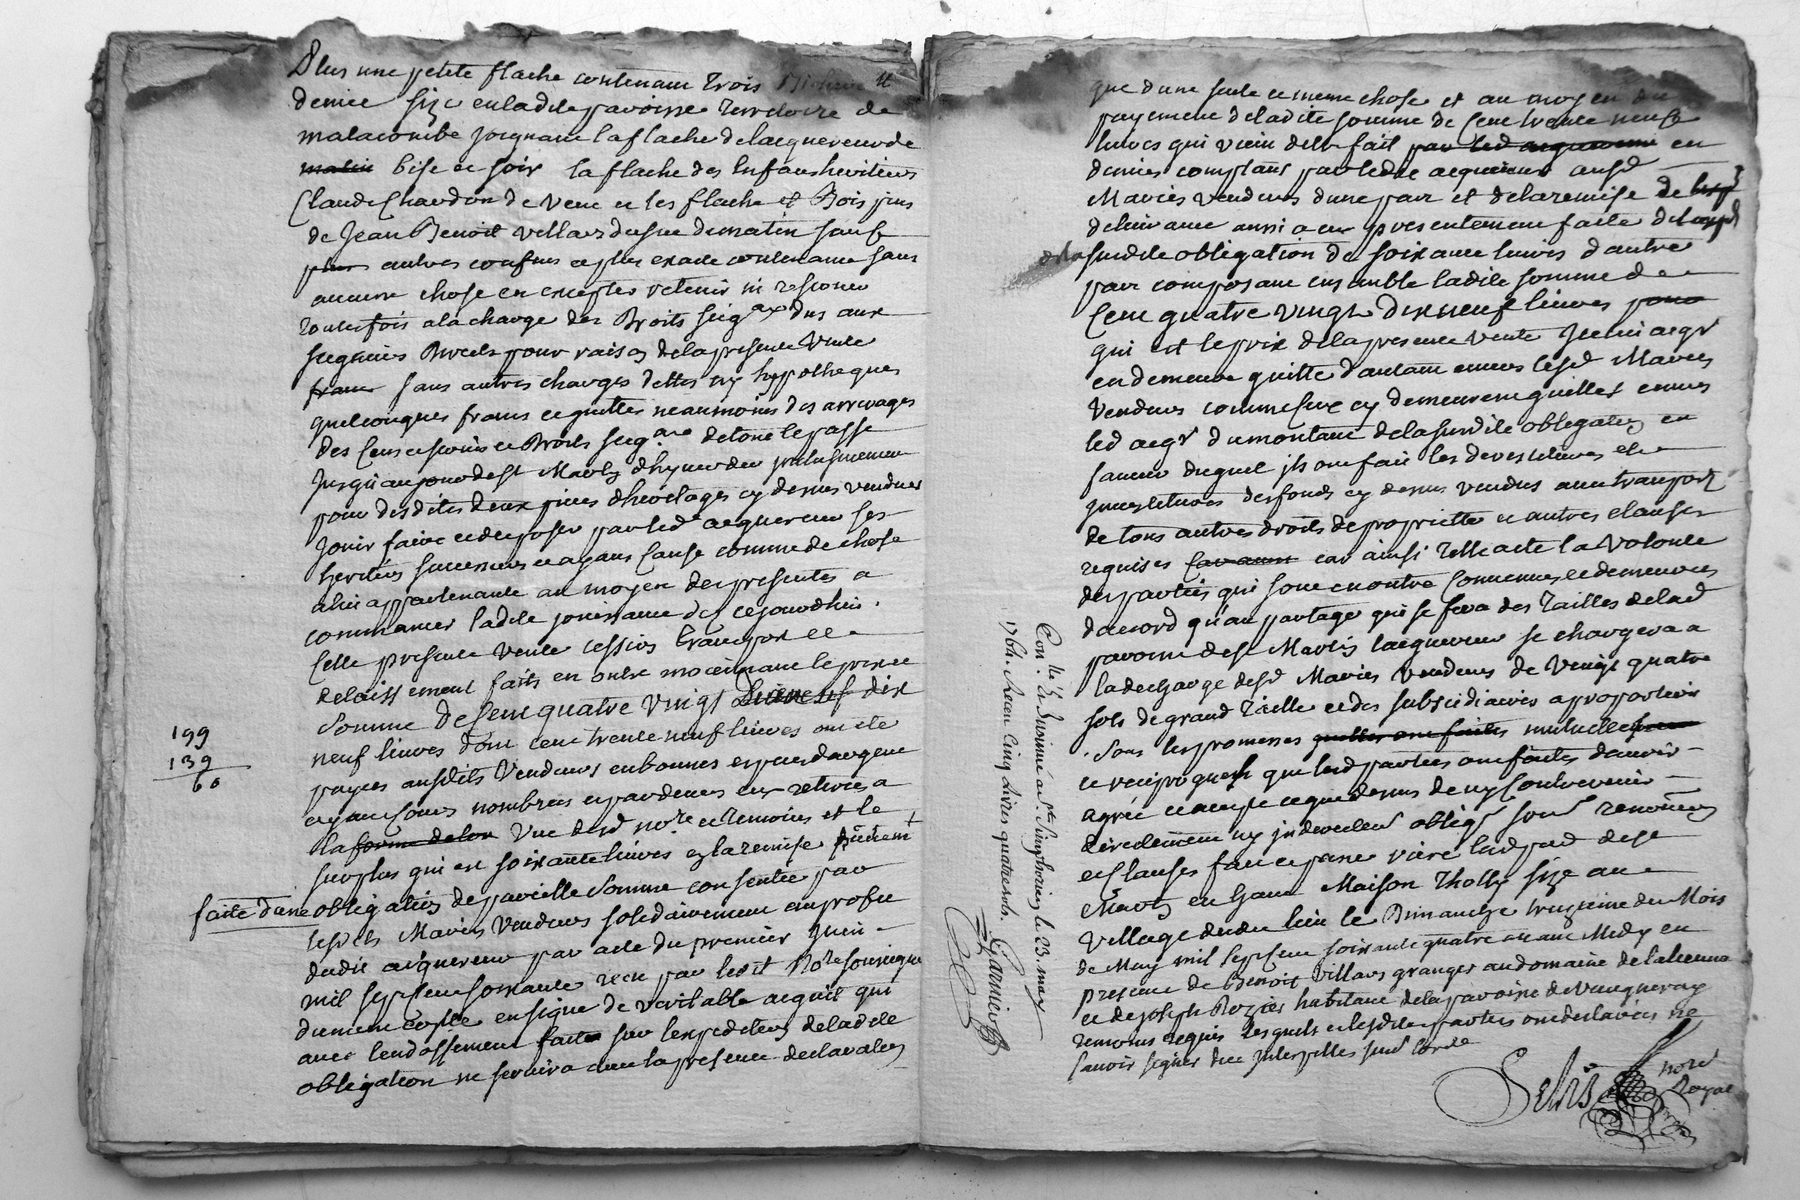 Plus une petite flache contenant trois
demie size en ladite paroisse territoire de
malacombe joignant la flache de lacquereur de
matin bise et soir la flache des Enfans heritiers
Claude Chardon de vent et les flache et Bois pins
de Jean Benoit villars dusus de matin sauf
plus autres confins et plus exacte contenance sans
aucune chose en excepter retenir ni reserver
toutesfois a la charge des Droits seig.aux dus aux
seigneurs Directs pour raison de la presente vente
franc sans autres charges dettes ny hyppotheques
quelconques francs et quittes neanmoins des arrerages
des Cens servis et Droits seig.aux de tout le passé
Jusqu'au jour de st Martin dhyver der inclusivement
pour desdites deux pieces dheritages cy dessus vendues
Jouir faire et disposer par led acquereur ses
heritiers successeurs et ayans Cause comme de chose
a lui appartenante au moyen des presentes a
commencer ladite jouissance des ce jourdhui.
Cette presente vente cession transport et
delaissement faits en outre moiennant le prix et
somme de Cent quatre vingt dix
neuf livres dont cent trente neuf livres ont ete
payés ausdits vendeurs en bonnes especes dargent
ayant Cours nombrées et par dvers eux retirés a
la forme de lor Vue dud no.re et temoins et le
surplus qui est soixante livres
faite d'une obligation de pareille somme consentie par
lesdits Mariés Vendeurs solidairement au profit
dudit acquereur par acte du premier Juin
mil sept cent soixante recu par ledit No.re soussigné
dument controllé en signe de veritable acquit qui
avec lendossement faite sur lexpedition de ladite
obligation ne servira avec la presente declaration
199
139
60
que d'une seule et meme chose et au moyen du
payement de ladite somme de Cent trente neuf
livres qui vient d'etre fait par led acquereur en
deniers comptans par ledit acquereur ausd
Mariés vendeurs d'une part et de la remise de
delivrance aussi a eux presentement faite
de la susdite obligation de soixante livres d'autre
part composant ensemble ladite somme de
Cent quatre vingt dix neuf livres pour
qui est le prix de la presente vente Icelui acqr
en demeure quitte d'autant envers lesd Mariés
vendeurs comme ceux cy demeurent quittes envers
led acqr du montant de la susdite obligation en
faveur duquel ils ont fait les devestitures et
investitures des fonds cy dessus vendus avec transport
de tous autres droits de proprietté et autres clauses
requises car ainsi telle a eté la volonté
des parties qui sont en outre Convenues et demeurées
daccord qu'au partage qui se fera des Tailles de lad
paroisse de st Martin lacquereur se chargera a
la decharge desd Mariés vendeurs de vingt quatre
sols de grand Taille et des subsidiaires a proportion
sous les promesses mutuelles
et reciproques que lesd parties ont faites d'avoir
agréé et accepté ce que dessus de n'y contrevenir
directement ny indirectement obligs soums renonciaons
et clauses fait et passé riere lad par de st
Martin en haut Maison Tholly size au
village dudu lieu le Dimanche treizieme du Mois
de May mil sept cent soixante quatre avant Midy en
presence de Benoit Villars granger au domaine de
et de Joseph Rozier habitant de la paroisse de Vaugneray
temoins requis lesquels et lesdites parties ont declarés ne
savoir signer de ce Interpellés suivt lord.ce
Delris
nore
Royal
Con.lé & insinué a St Simphorien le 23 may
1764. Recu Cinq livres quatre sols. Garnier